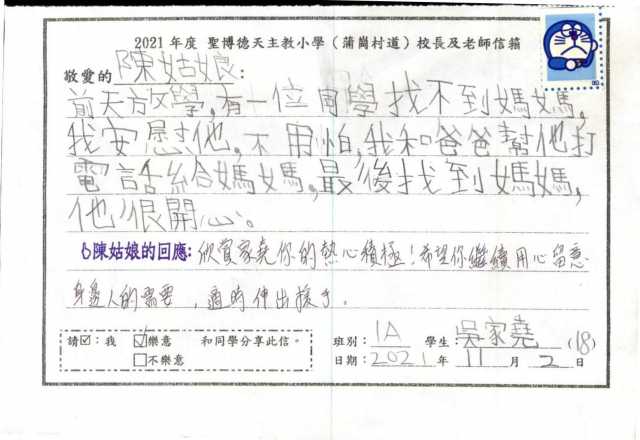 2021 年度 聖博德天主教小學（蒲崗村道）校長及老師信箱
敬愛的 陳姑娘：
前天放學，有一位同學找不到媽媽，
我安慰他，不用怕，我和爸爸幫他打
電話給媽媽，最後找到媽媽，
他很開心。
陳姑娘的回應：欣賞家堯你的熱心積極！希望你繼續用心留意
身邊人的需要，適時伸出援手。
請☑：我 ☑樂意 和同學分享此信。 班別：1A 學生：吳家堯 (18)
□不樂意 日期：2021 年 11 月 2 日